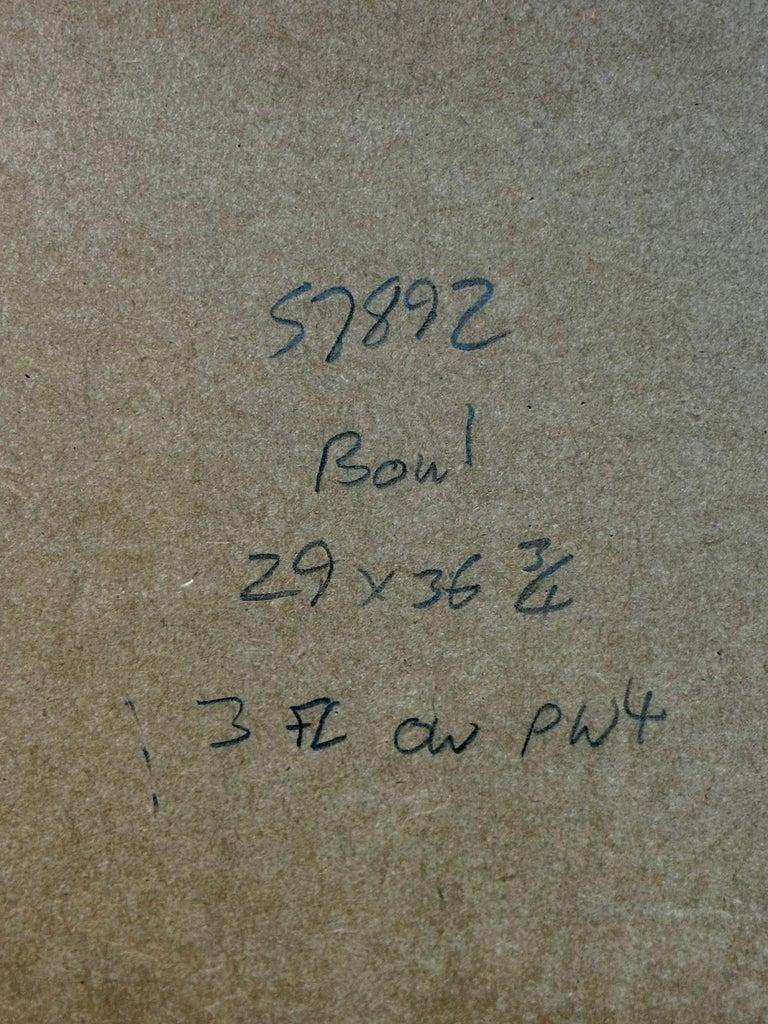 57892
Bowl
29 x 36 3/4
3 FL OW PW4